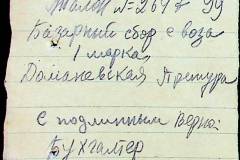 Талон № 2647 99
Базарный сбор с воза
1 марка
Доманевская Претура
С подлинным верно:
Бухгалтер